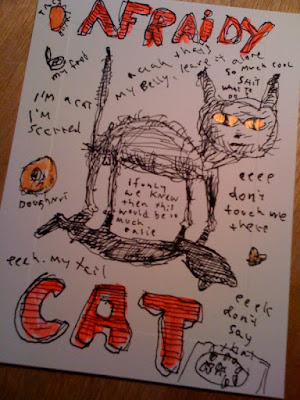 AFRAIDY
my food
aaah thats
my Belly, leave it alone
so much cool
shit
what to
do
I'm a cat
I'm
scerred
Doughnut
if only
we knew
then this
would be so
much
easie
eeee
don't
touch me
there
eeeh. my tail
eeek
don't
say
that
CAT